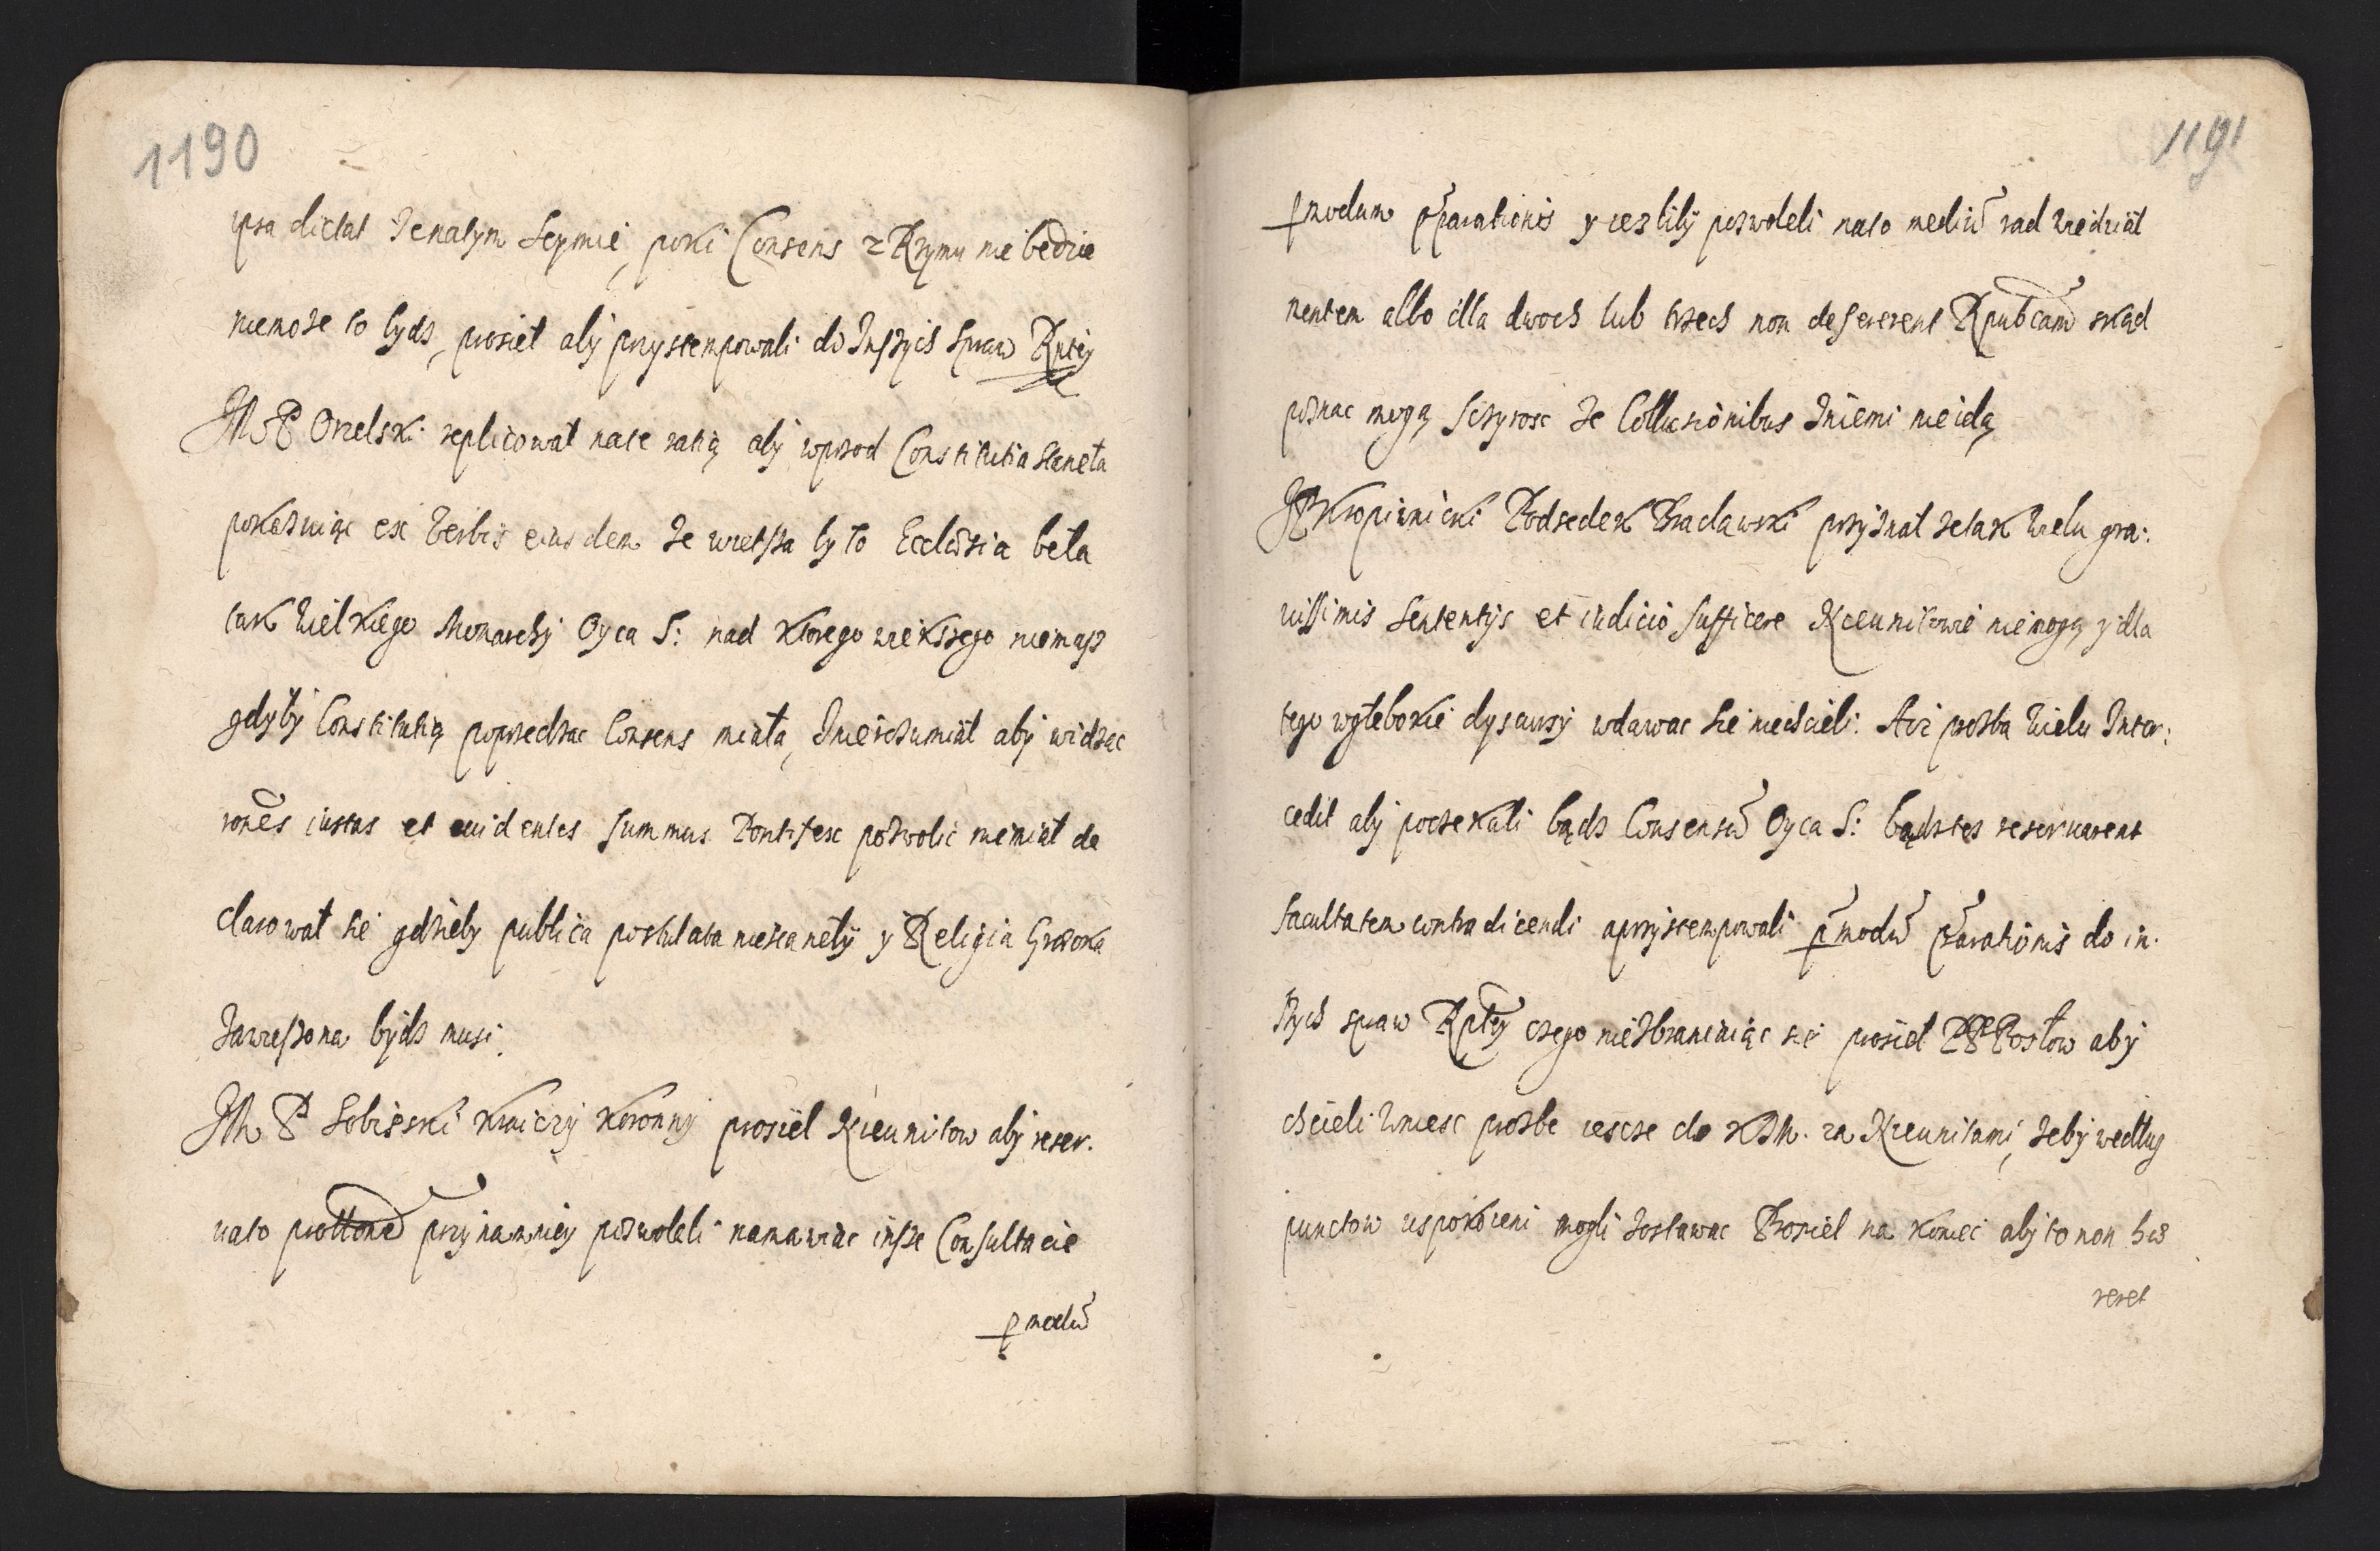 1190
ipsa dictat Ze natym Seymie, poki Consens z Rzymu nie bedzie
niemoze to bydz, prosiel aby przystempowali do Inszych spraw Rptey
JM P Orzelski replicowal nate ratią aby wprzod Constitutia staneła
pokazuiąc ex verbis eiusdem Ze wietsza by to Ecclesia beła
tak Wielkiego Monarchy Oyca S: nad ktorego wiekszego niemasz
gdyby Constitutią poprzedzac Consens miała, Inierozumial aby widzac
rones iustas et euidentes summus Pontifex pozwolic niemial de
clarowal sie gdzieby publica postulata niestaneły y Religia Grecka
Zawieszona bydz musi.
JM P Sobieski Kraiczy Koronny prosiel Nieunitow aby reser-
uato prottone przynamniey pozwoleli namawiac insze Consultacie
p modu
1191
p modum pparationis y iezliby pozwoleli nato mediu rad wiedzial
nentem albo illa dwoch lub trzech non desererent Rpubcam skąd
poznac mogą sczyrosc Ze Collusionibus Zniemi nieidą
JP Kropiwnicki Podsedek Braclawski przyznal zetak wielu gra:
uissimis Sententijs et iudicio sufficere Nieunitowie niemogą y dla
tego wglebokie dyscursy wdawac sie niechcieli. Aże prozba wielu Inter:
cedit aby poczekali bądz Consensu Oyca S: bądztez reseruarent
facultatem contradicendi aprzystempowali p modu pparationis do in-
szych spraw Rptey czego niezbraniaiąc sie prosiel PP Posłow aby
chcieli wniesc prozbe iescze do KJM. za Nieunitami, zeby wedlug
punctow uspokoieni mogli zostawac Prosiel na koniec aby to non hæ
reret